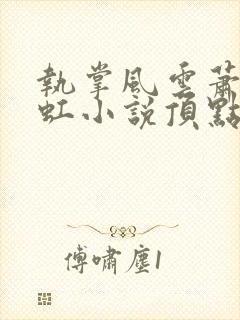 執掌風雲蕭
虹小說頂點
傅嘯塵1